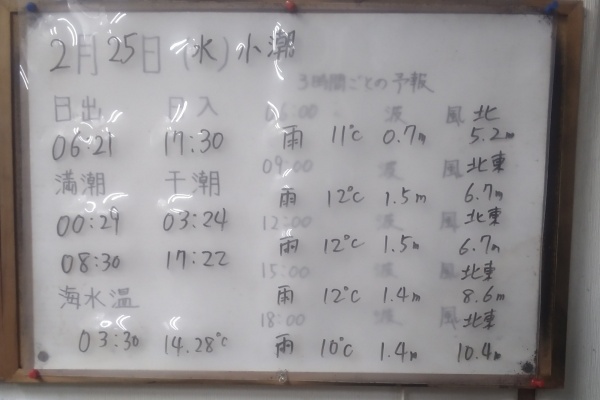 2月25日(水)小潮
3時間ごとの予報
日出 日入
06:21 17:30
満潮 干潮
00:29 03:24
08:30 17:22
海水温
03:30 14.28℃
06:00 波 風 北
雨 11℃ 0.7m 5.2m
09:00 波 風 北東
雨 12℃ 1.5m 6.7m
12:00 波 風 北東
雨 12℃ 1.5m 6.7m
15:00 波 風 北東
雨 12℃ 1.4m 8.6m
18:00 波 風 北東
雨 10℃ 1.4m 10.4m